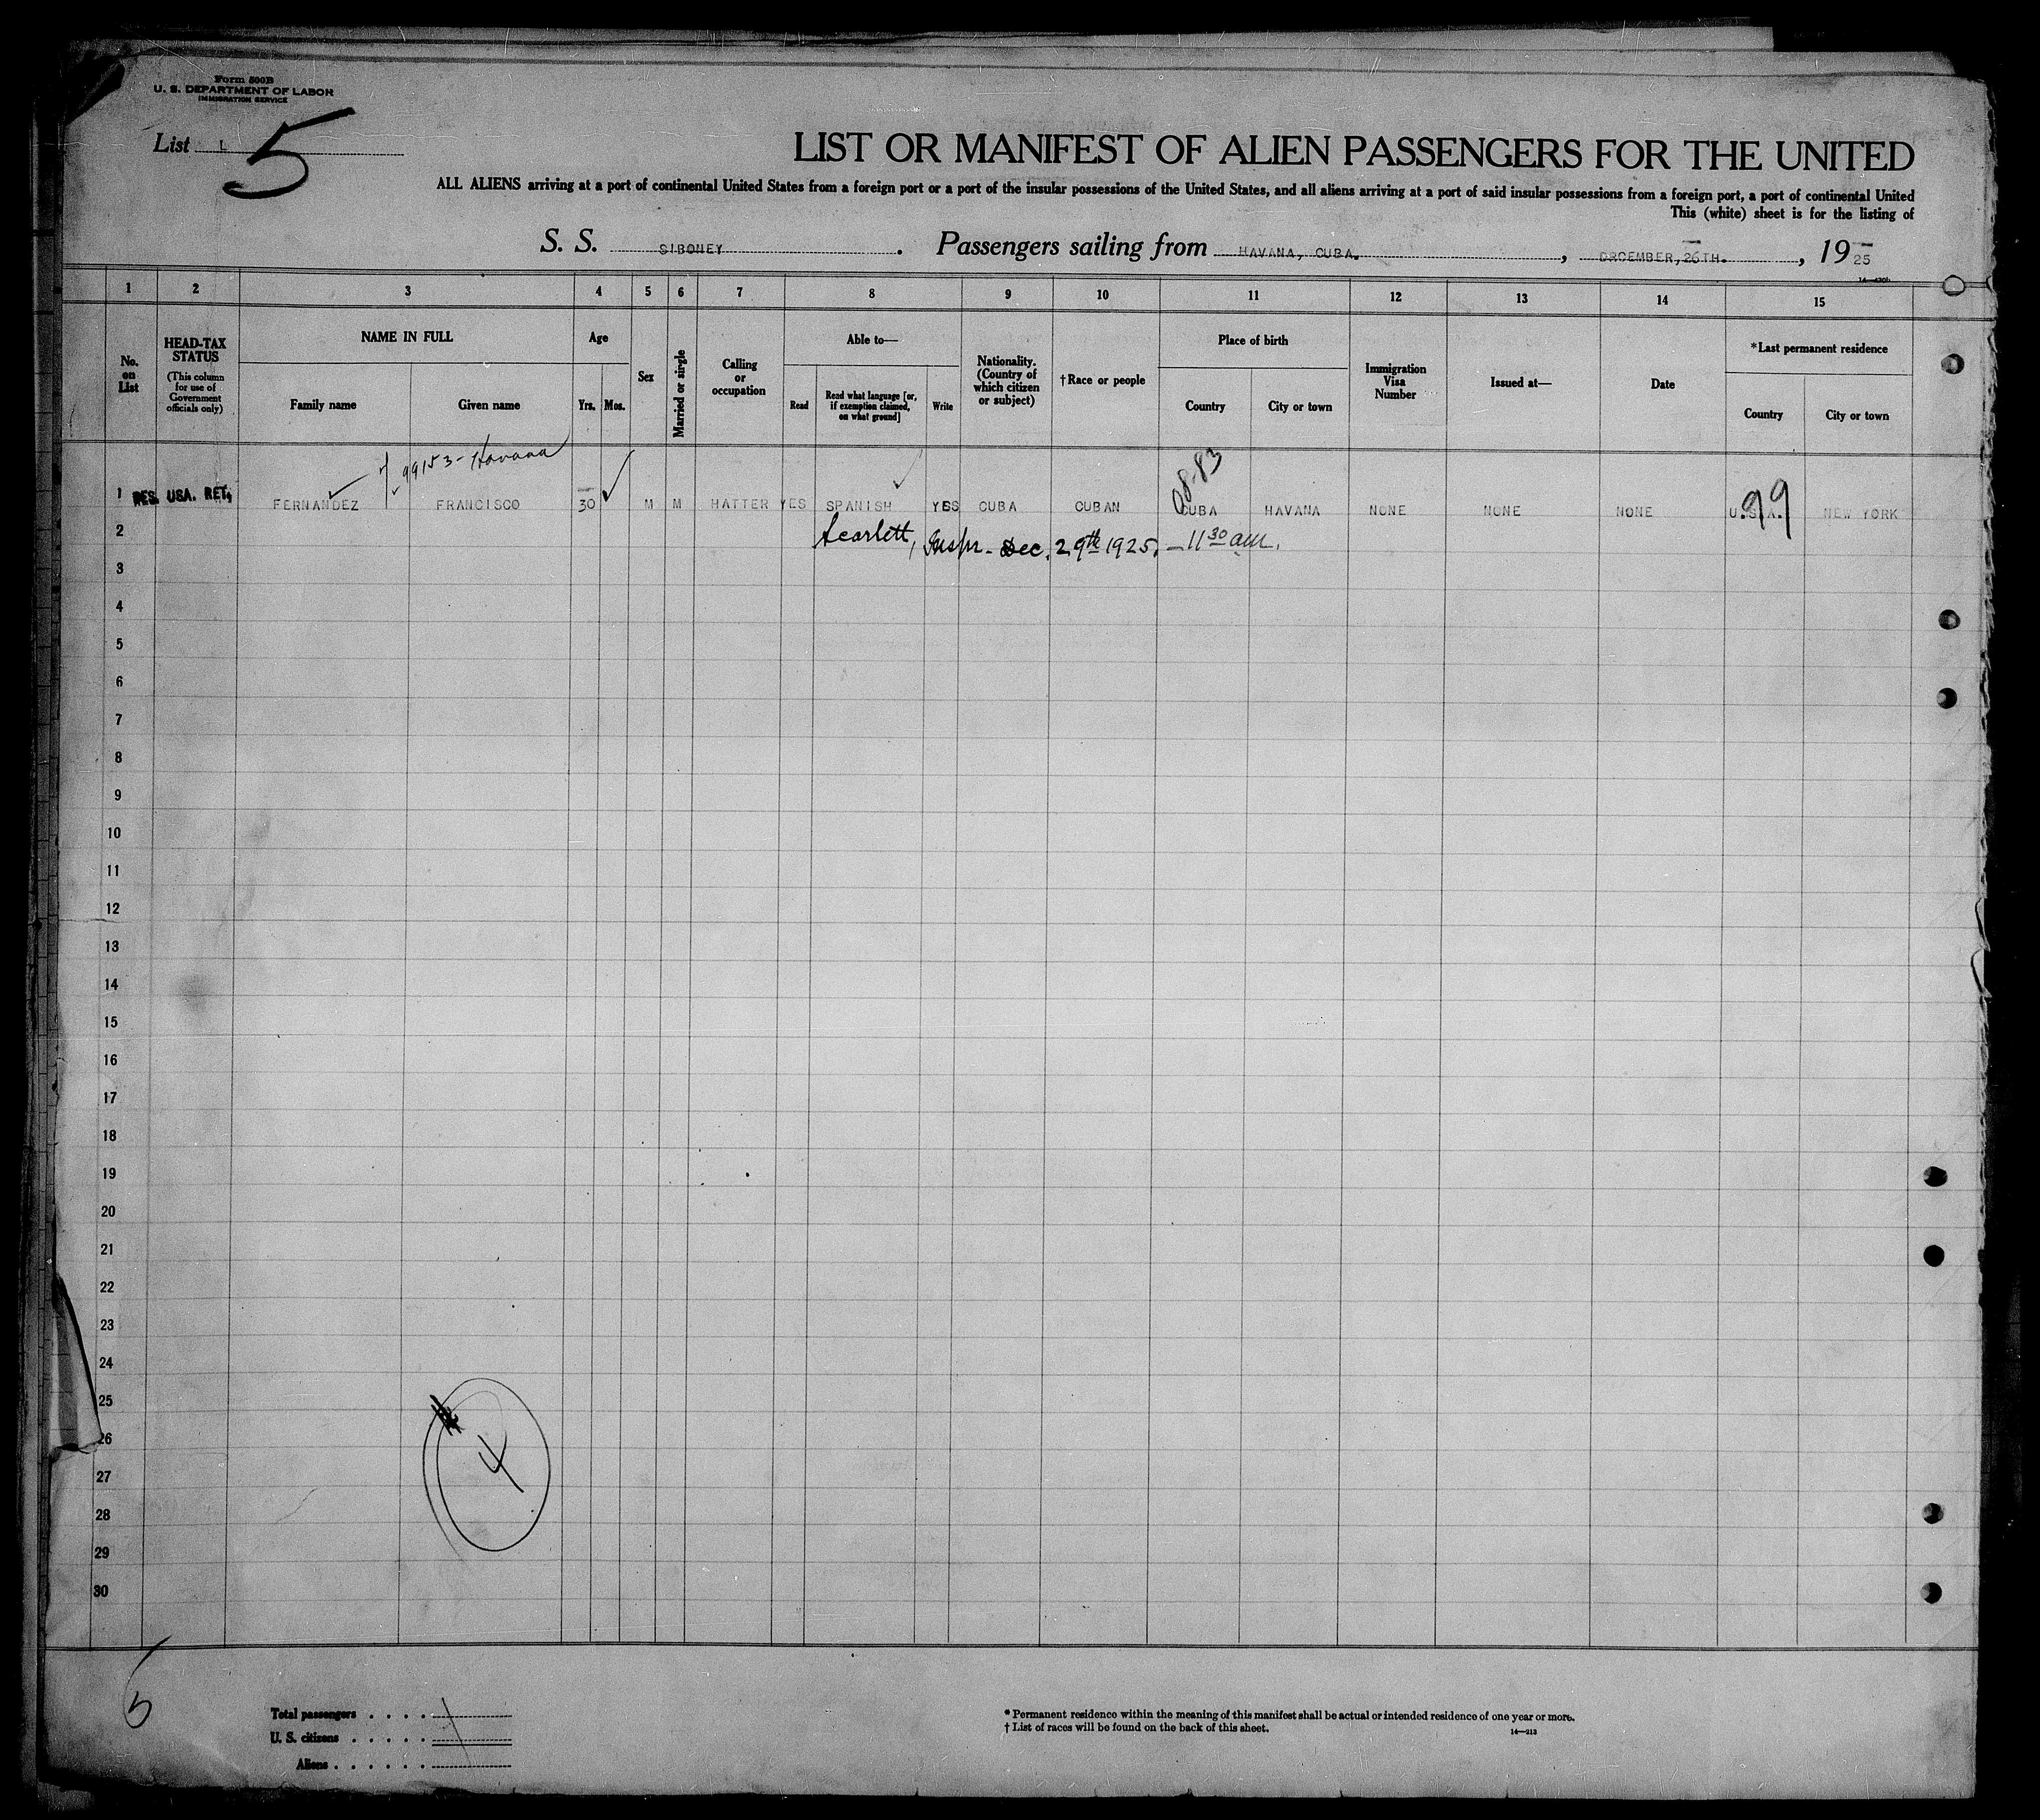 Form 500B
U. S. DEPARTMENT OF LABOR
IMMIGRATION SERVICE
List L 5
LIST OR MANIFEST OF ALIEN PASSENGERS FOR THE UNITED
ALL ALIENS arriving at a port of continental United States from a foreign port or a port of the insular possessions of the United States, and all aliens arriving at a port of said insular possessions from a foreign port, a port of continental United
This (white) sheet is for the listing of
S. S. SIBONEY. Passengers sailing from HAVANA, CUBA. , DECEMBER, 26TH. , 19 25
1 2 3 4 5 6 7 8 9 10 11 12 13 14 15
No. on List
HEAD-TAX STATUS
(This column for use of Government officials only)
NAME IN FULL
Family name Given name
Age
Yrs. Mos.
Sex
Married or single
Calling or occupation
Able to—
Read
Read what language [or, if exemption claimed, on what ground]
Write
Nationality. (Country of which citizen or subject)
†Race or people
Place of birth
Country City or town
Immigration Visa Number
Issued at—
Date
*Last permanent residence
Country City or town
99153 - Havana
1 RES. USA. RET. FERNANDEZ FRANCISCO 30 M M HATTER YES SPANISH YES CUBA CUBAN CUBA HAVANA NONE NONE NONE U.S.A. NEW YORK
99
2 Scarlett, Inspr. Dec. 29th 1925. — 11 30 am.
3
4
5
6
7
8
9
10
11
12
13
14
15
16
17
18
19
20
21
22
23
24
25
26
27
28
29
30
4
5
Total passengers . . . .
U. S. citizens . . . . .
Aliens . . . . . .
* Permanent residence within the meaning of this manifest shall be actual or intended residence of one year or more.
† List of races will be found on the back of this sheet.
14—213